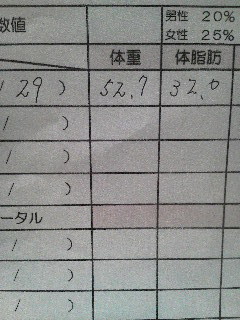 数値
男性 20%
女性 25%
体重 体脂肪
/ 29 ) 52.7 32.0
/ )
/ )
/ )
ータル
/ )
/ )
/ )